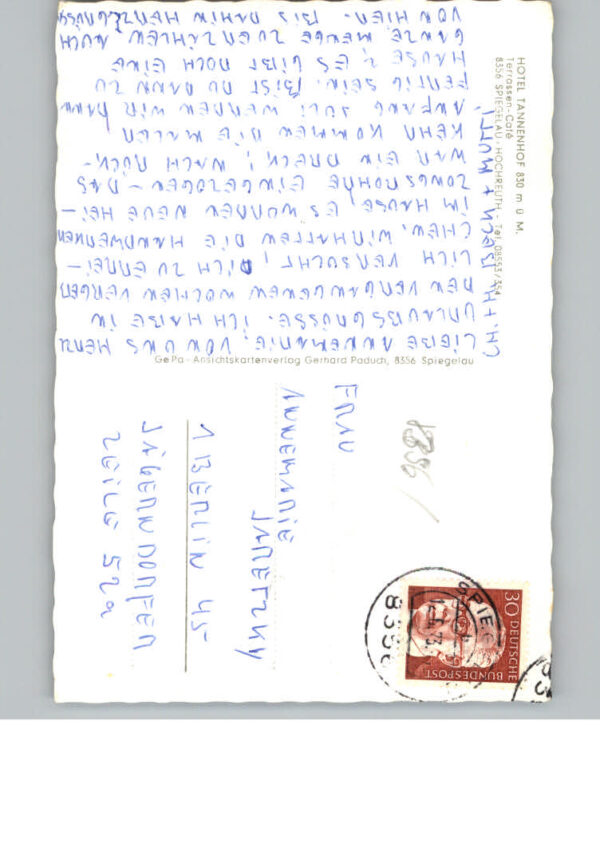 HOTEL TANNENHOF 830 m ü M.
Terrassen-Café
8356 SPIEGELAU - HOCHREUTH - Tel. 08553/354
LIEBE ANNEMARIE, VON UNS HERZL
URLAUBSGRÜSSE. ICH HABE IN
DEN VERGANGENEN WOCHEN VERGEB
LICH VERSUCHT, DICH ZU ERREI-
CHEN. WIR HATTEN DIE HANDWERKER
IM HAUSE, ES WURDEN NEUE HEI-
ZUNGSROHRE EINGEZOGEN – DAS
WAR EIN DRECK! NACH RÜCK-
KEHR KOMMEN DIE MALER
ANFANG JULI WERDEN WIR DANN
FERTIG SEIN. BIST DU DANN ZU
HAUSE? ES GIBT NOCH EINE
GANZE MENGE ZU ERZÄHLEN AUCH
VON HIER. BIS DAHIN HERZL. GRÜSSE
CH. + H. + MUTTI
GePa - Ansichtskartenverlag Gerhard Paduch, 8356 Spiegelau
8356
FRAU
ANNEMARIE
JARETZKY
1 BERLIN 45
JÄGERNDORFER
ZEILE 52a
30 DEUTSCHE
BUNDESPOST
8356